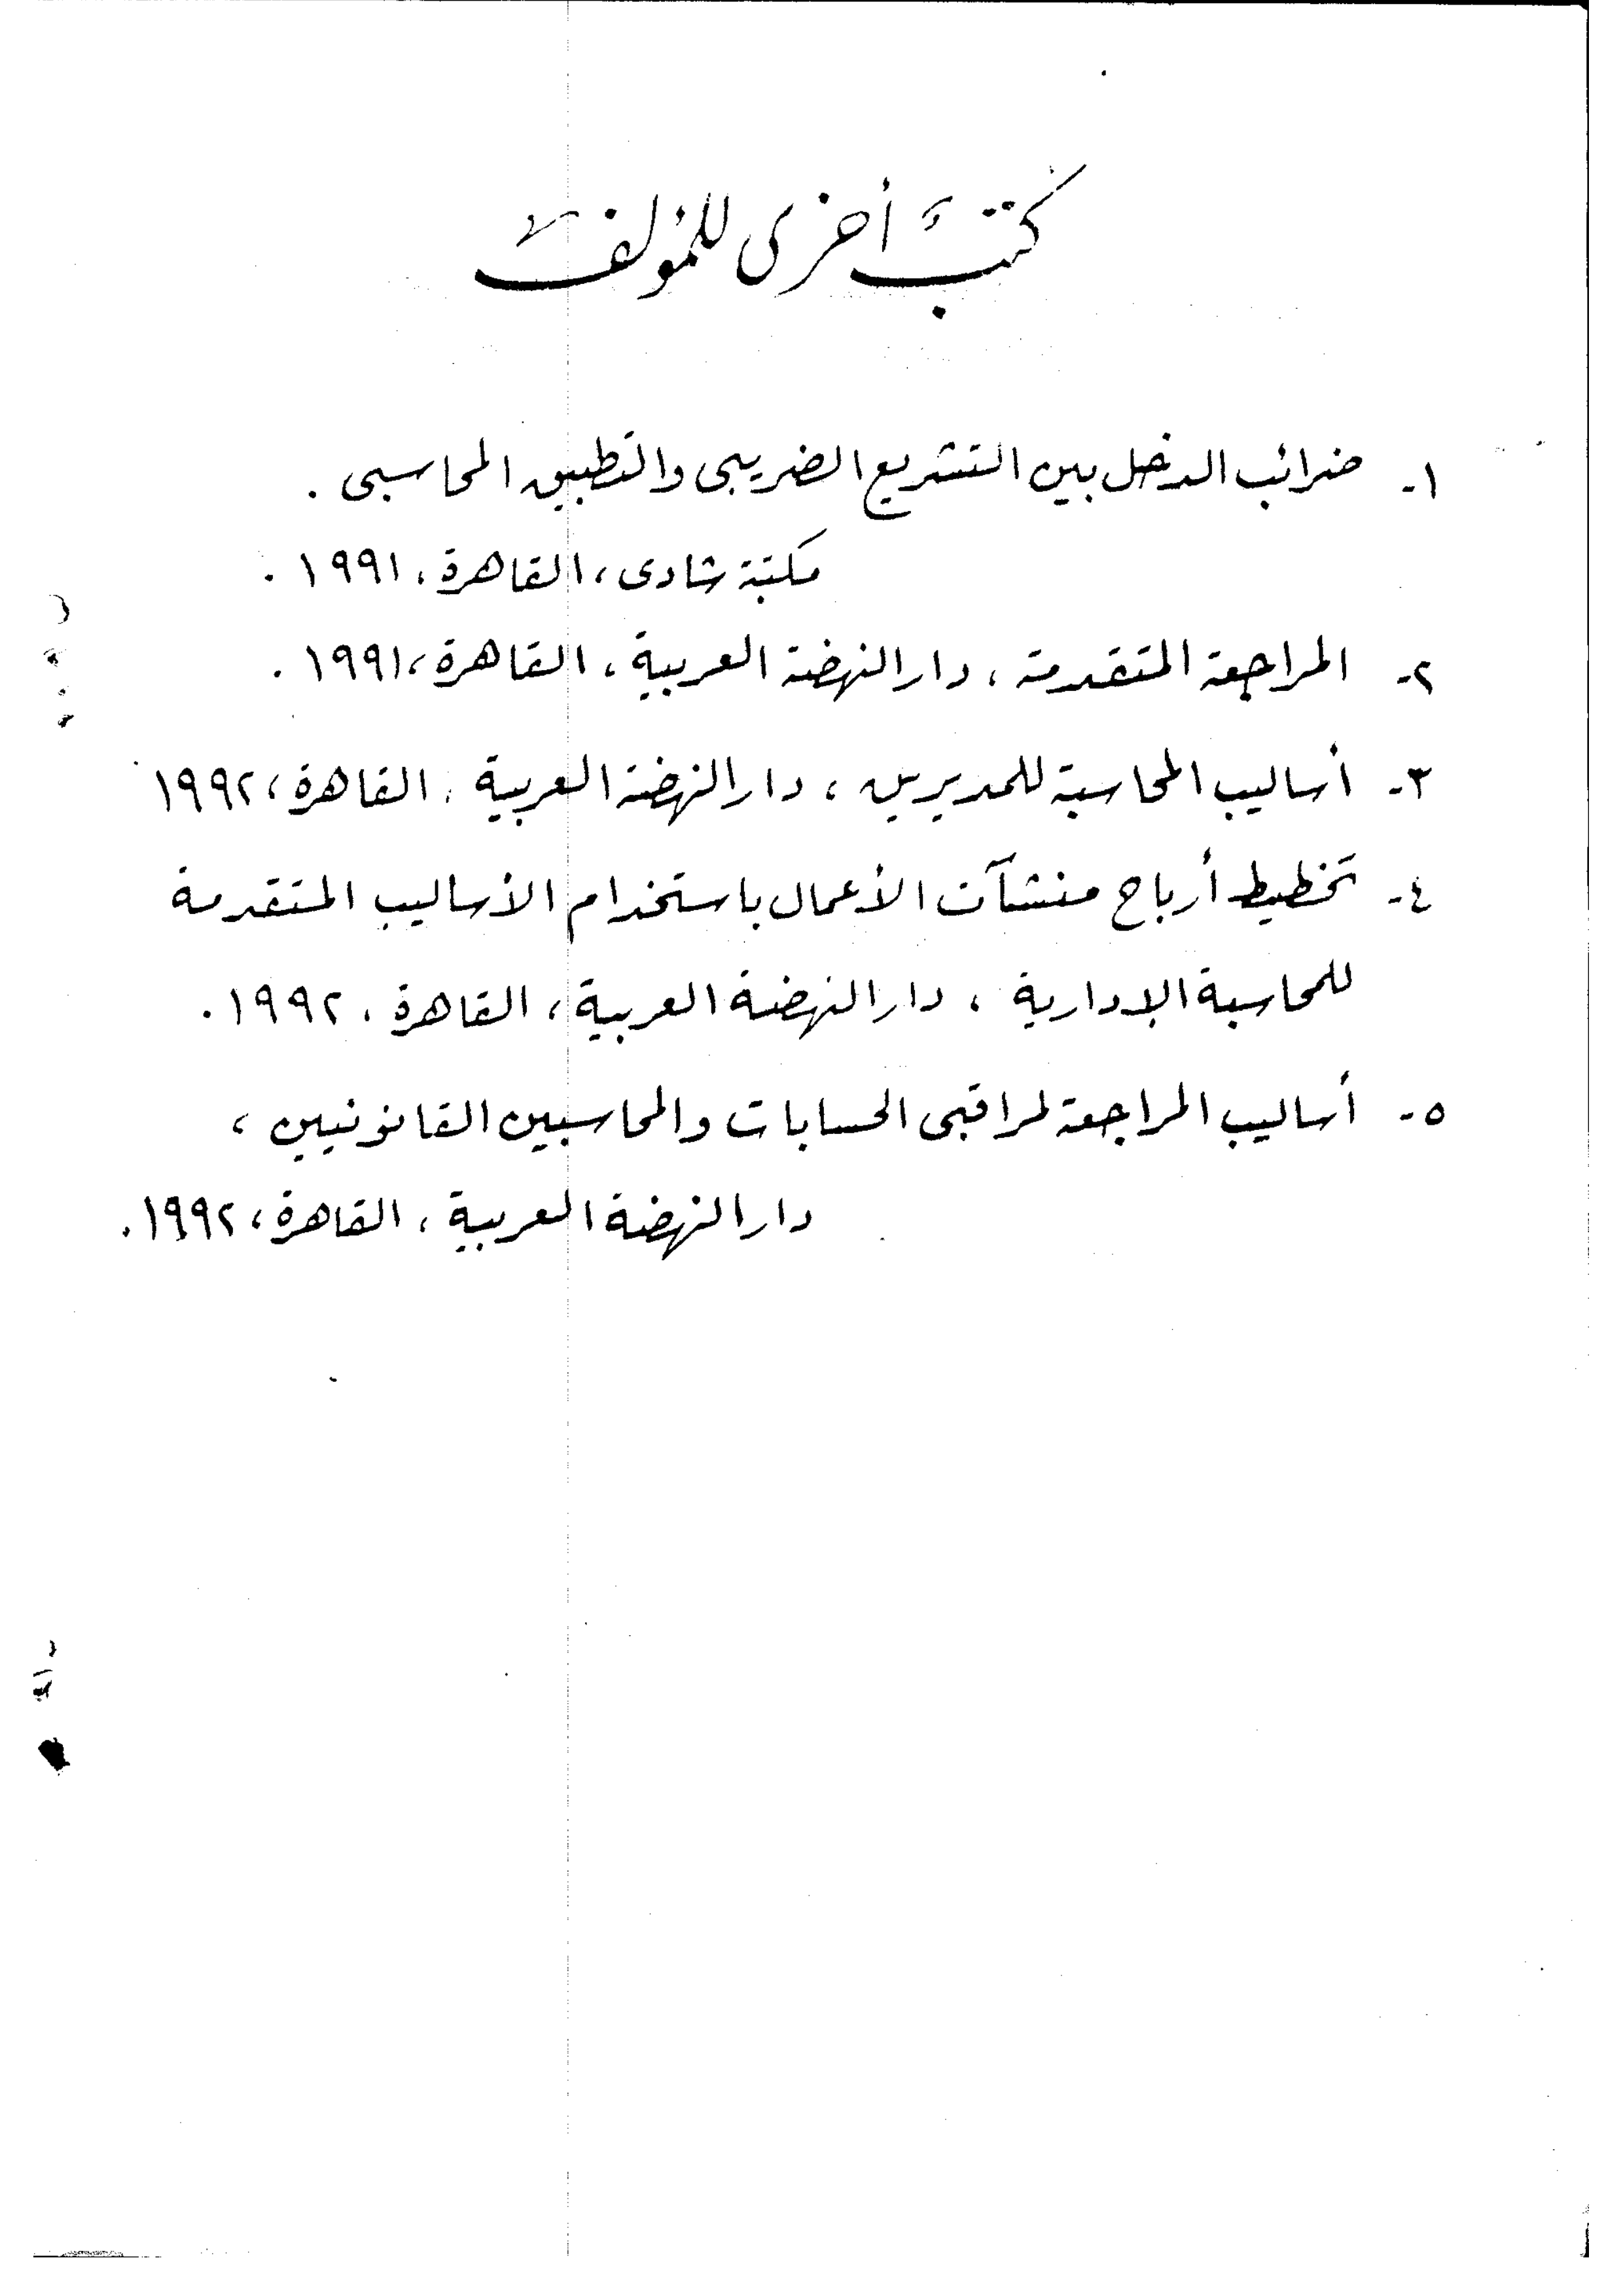 كتب أخرى للمؤلف
١- ضرائب الدخل بين التشريع الضريبى والتطبيق المحاسبى .
مكتبة شادى ، القاهرة ، ١٩٩١ .
٢- المراجعة المتقدمة ، دار النهضة العربية ، القاهرة ، ١٩٩١ .
٣- أساليب المحاسبة للمديرين ، دار النهضة العربية ، القاهرة ، ١٩٩٢ .
٤- تخطيط أرباح منشآت الأعمال باستخدام الأساليب المتقدمة
للمحاسبة الإدارية ، دار النهضة العربية ، القاهرة ، ١٩٩٢ .
٥- أساليب المراجعة لمراقبى الحسابات والمحاسبين القانونيين ،
دار النهضة العربية ، القاهرة ، ١٩٩٢ .